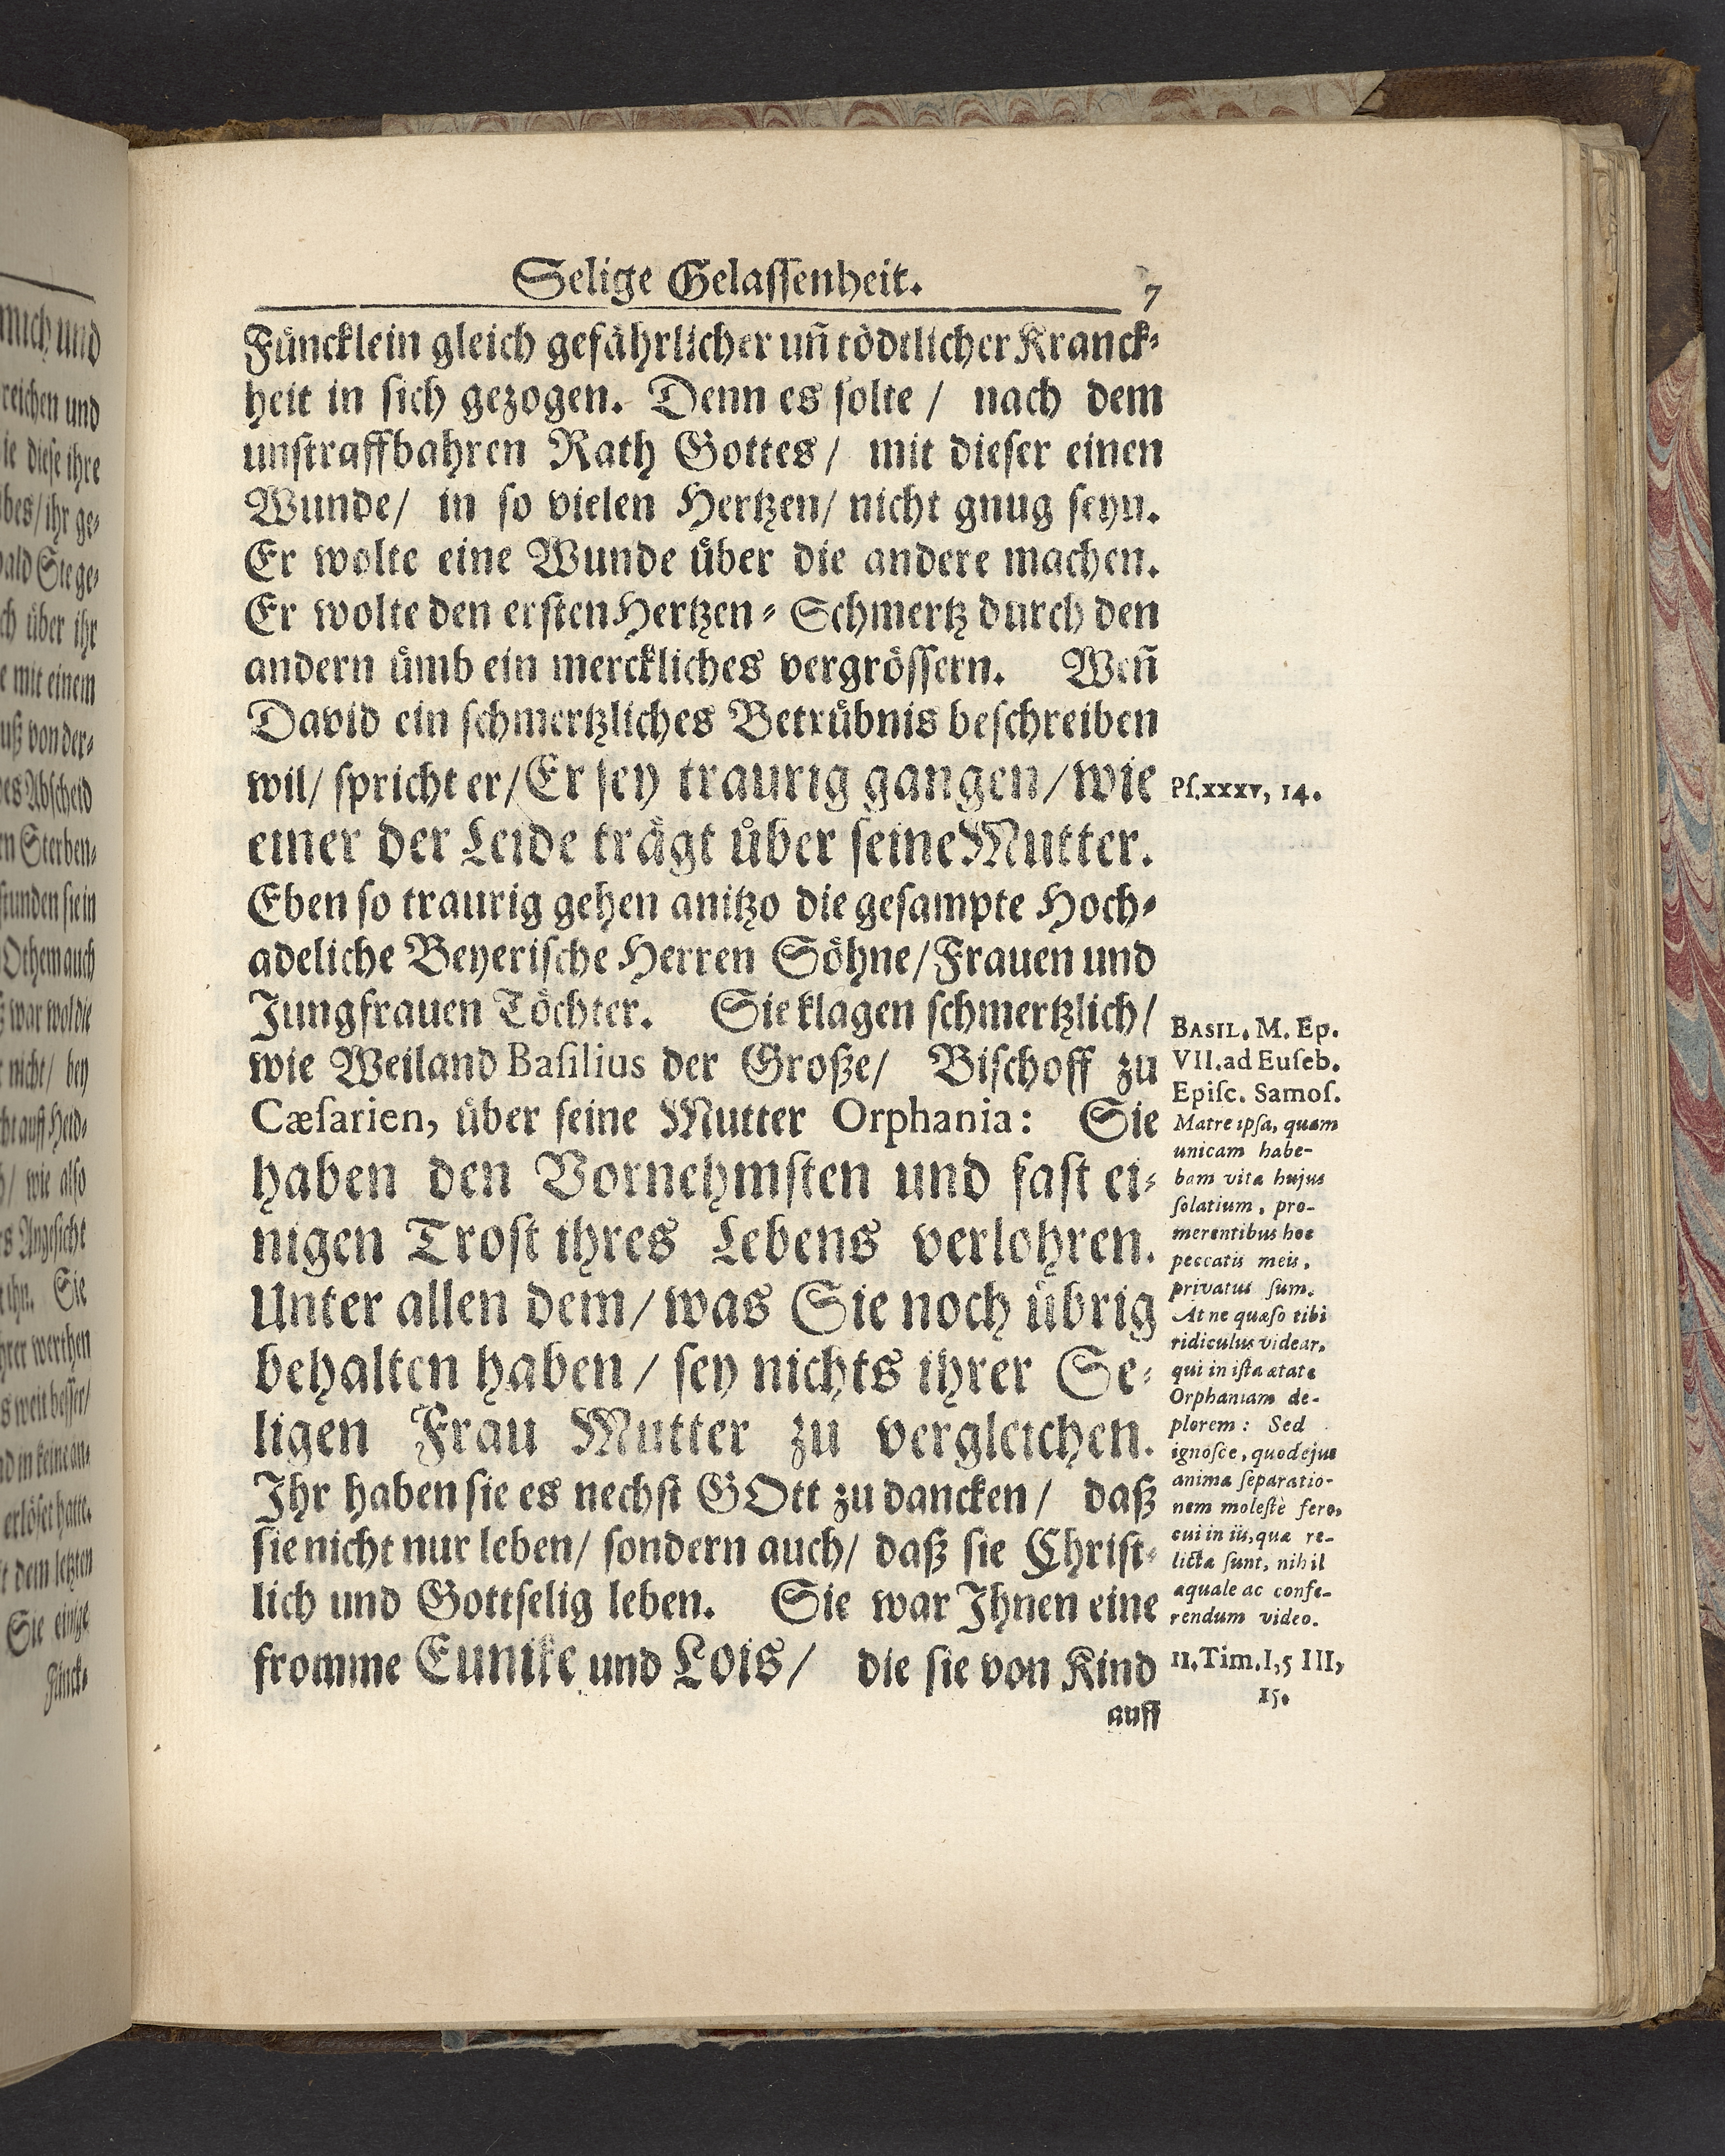 Selige Gelassenheit.
7
Fůncklein gleich gefåhrlicher uñ tödtlicher Kranck⸗
heit in sich gezogen. Denn es solte / nach dem
unstraffbahren Rath Gottes / mit dieser einen
Wunde / in so vielen Hertzen / nicht gnug seyn.
Er wolte eine Wunde ůber die andere machen.
Er wolte den ersten Hertzen⸗Schmertz durch den
andern ůmb ein merckliches vergrössern. Weñ
David ein schmertzliches Betrůbnis beschreiben
wil / spricht er / Er sey traurig gangen / wie
einer der Leide trågt ůber seine Mutter.
Eben so traurig gehen anitzo die gesampte Hoch⸗
adeliche Beyerische Herren Söhne / Frauen und
Jungfrauen Töchter. Sie klagen schmertzlich /
wie Weiland Basilius der Große / Bischoff zu
Cæsarien, ůber seine Mutter Orphania: Sie
haben den Vornehmsten und fast ei⸗
nigen Trost ihres Lebens verlohren.
Unter allen dem / was Sie noch ůbrig
behalten haben / sey nichts ihrer Se⸗
ligen Frau Mutter zu vergleichen.
Ihr haben sie es nechst GOtt zu dancken / daß
sie nicht nur leben / sondern auch / daß sie Christ⸗
lich und Gottselig leben. Sie war Ihnen eine
fromme Eunike und Lois / die sie von Kind
auff
Ps.xxxv, 14.
BASIL. M. Ep.
VII. ad Euseb.
Episc. Samos.
Matre ipsa, quam
unicam habe-
bam vitæ hujus
solatium, pro-
merentibus hoc
peccatis meis,
privatus sum.
At ne quæso tibi
ridiculus videar,
qui in ista ætate
Orphaniam de-
plorem: Sed
ignosce, quod ejus
animæ separatio-
nem molestè fero,
cui in iis, quæ re-
licta sunt, nihil
æquale ac confe-
rendum video.
II. Tim. I, 5 III,
15.
mich und
reichen und
ie diese ihre
bes / ihr ge⸗
bald Sie ge⸗
ch ůber ihr
e mit einem
uß von der⸗
es Abscheid
en Sterben⸗
stunden sie in
Othem auch
ß war wol die
t nicht / bey
ht auff Held⸗
h / wie also
s Angesicht
t ihn. Sie
hrer werthen
s weit besser /
nd in keine an⸗
erlöset hatte.
t dem letzten
Sie einige
Fůnck⸗